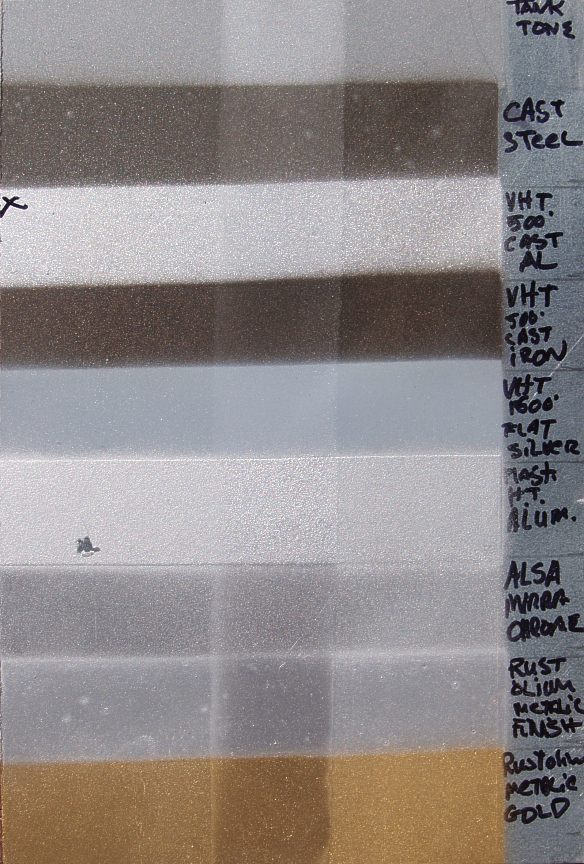 TANK
TONE
CAST
STEEL
VHT
500°
CAST
AL
X
VHT
500°
CAST
IRON
VHT
1500°
FLAT
SILVER
HT.
ALUM.
ALSA
MIRRA
CHROME
RUST
OLIUM
METALIC
FINISH
METALIC
GOLD